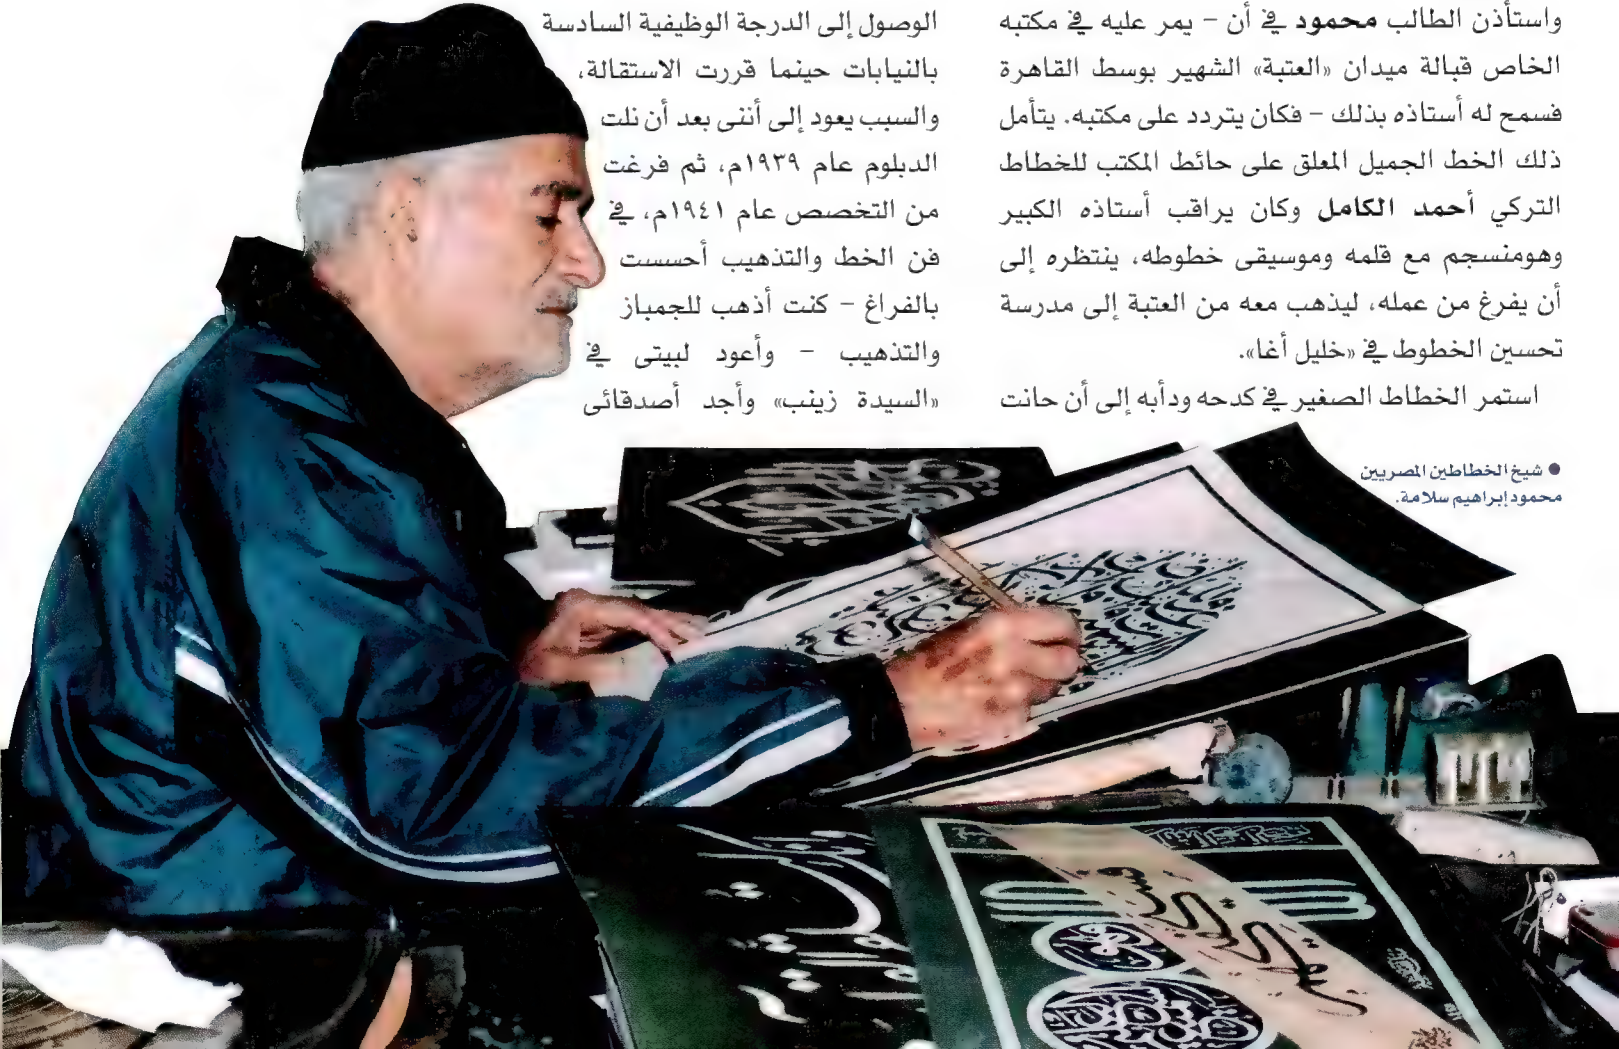 واستأذن الطالب محمود في أن – يمر عليه في مكتبه
الخاص قبالة ميدان «العتبة» الشهير بوسط القاهرة
فسمح له أستاذه بذلك – فكان يتردد على مكتبه. يتأمل
ذلك الخط الجميل المعلق على حائط المكتب للخطاط
التركي أحمد الكامل وكان يراقب أستاذه الكبير
وهومنسجم مع قلمه وموسيقى خطوطه، ينتظره إلى
أن يفرغ من عمله، ليذهب معه من العتبة إلى مدرسة
تحسين الخطوط في «خليل أغا».
استمر الخطاط الصغير في كدحه ودأبه إلى أن حانت
● شيخ الخطاطين المصريين
محمود إبراهيم سلامة.
الوصول إلى الدرجة الوظيفية السادسة
بالنيابات حينما قررت الاستقالة،
والسبب يعود إلى أننى بعد أن نلت
الدبلوم عام ١٩٣٩م، ثم فرغت
من التخصص عام ١٩٤١م، في
فن الخط والتذهيب أحسست
بالفراغ – كنت أذهب للجمباز
والتذهيب – وأعود لبيتى في
«السيدة زينب» وأجد أصدقائى